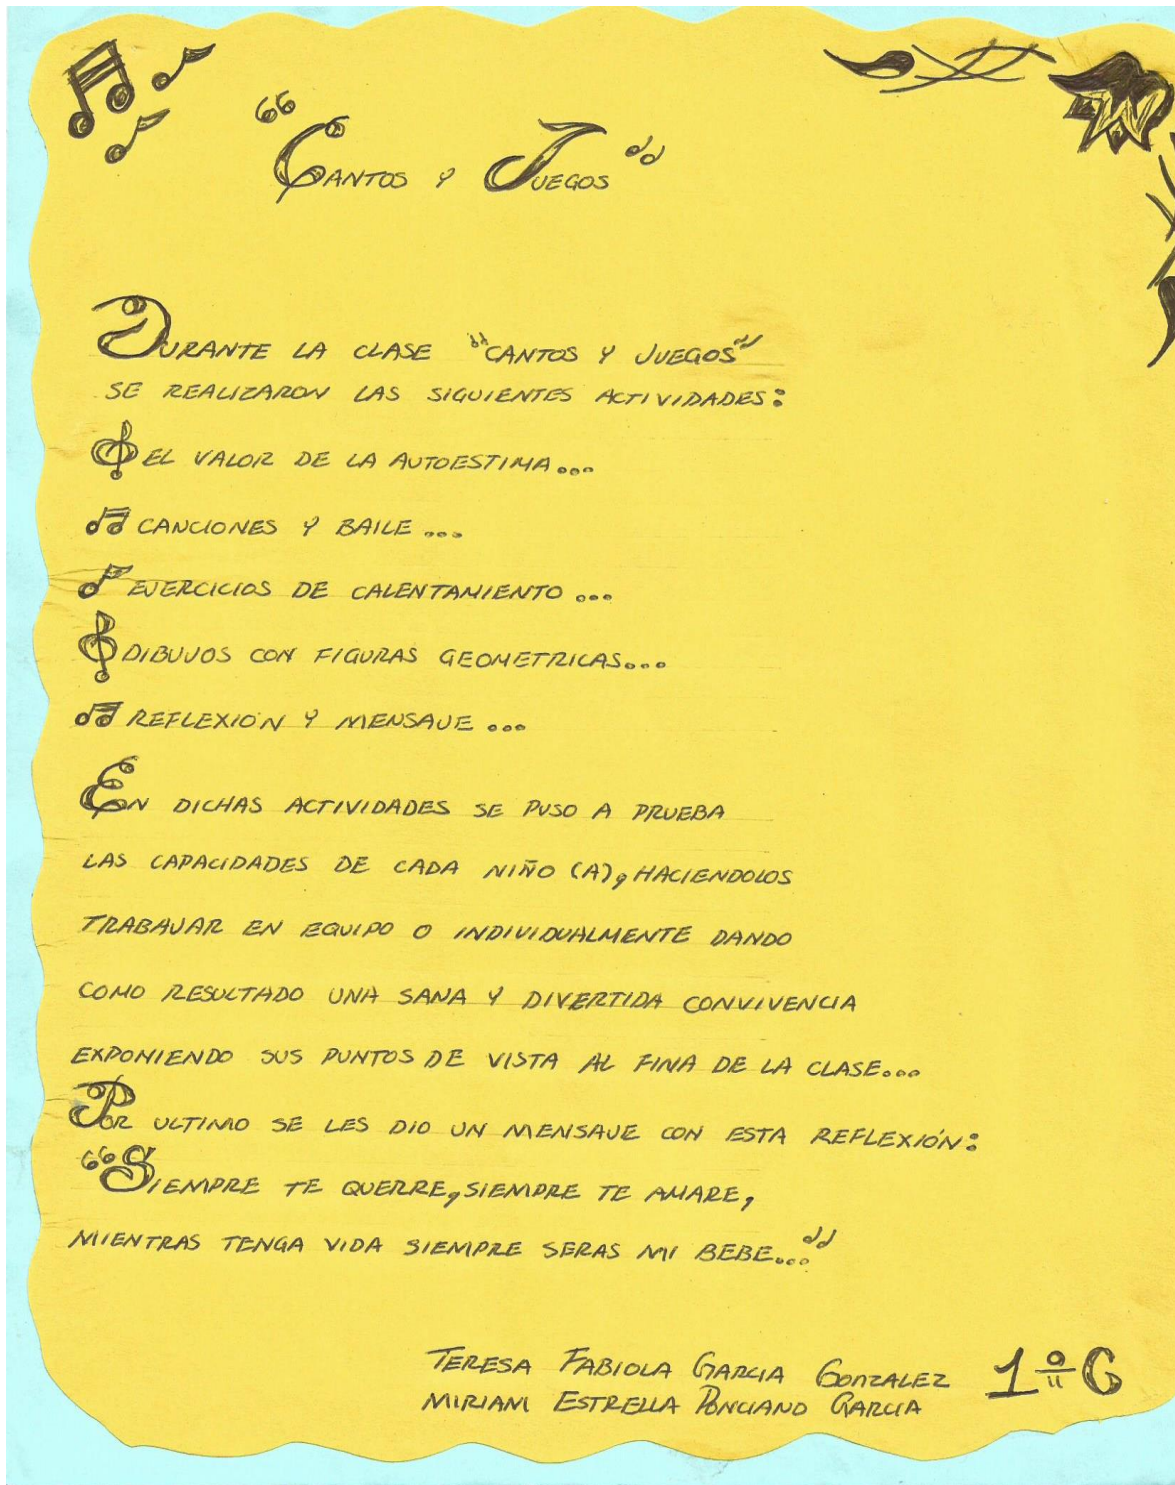 "CANTOS Y JUEGOS"
DURANTE LA CLASE "CANTOS Y JUEGOS"
SE REALIZARON LAS SIGUIENTES ACTIVIDADES:
EL VALOR DE LA AUTOESTIMA...
CANCIONES Y BAILE...
EJERCICIOS DE CALENTAMIENTO...
DIBUJOS CON FIGURAS GEOMETRICAS...
REFLEXIÓN Y MENSAJE...
EN DICHAS ACTIVIDADES SE PUSO A PRUEBA
LAS CAPACIDADES DE CADA NIÑO (A), HACIENDOLOS
TRABAJAR EN EQUIPO O INDIVIDUALMENTE DANDO
COMO RESULTADO UNA SANA Y DIVERTIDA CONVIVENCIA
EXPONIENDO SUS PUNTOS DE VISTA AL FINA DE LA CLASE...
POR ULTIMO SE LES DIO UN MENSAJE CON ESTA REFLEXIÓN:
"SIEMPRE TE QUERRE, SIEMPRE TE AMARE,
MIENTRAS TENGA VIDA SIEMPRE SERAS MI BEBE..."
TERESA FABIOLA GARCIA GONZALEZ 1º "G
MIRIAM ESTRELLA PONCIANO GARCIA